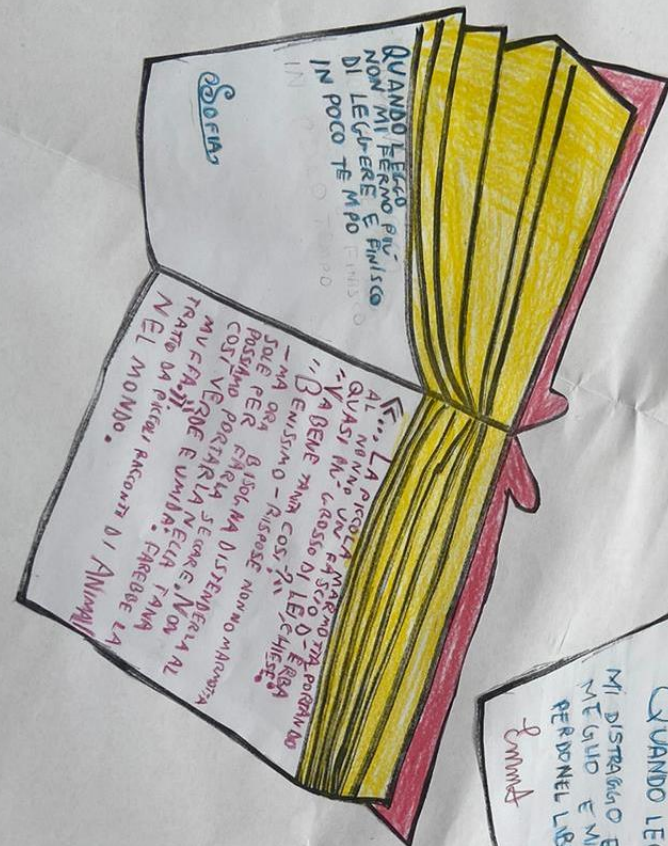 QUANDO LEGGO
NON MI FERMO PIU'
DI LEGGERE E FINISCO
IN POCO TEMPO
SOFIA
«... LA PICCOLA MARMOTTA PORTANDO
AL NONNO UN FASCIO D'ERBA
QUASI PIÙ GROSSO DI LEI
"VA BENE COSI?" CHIESE.
BENISSIMO - RISPOSE NONNO MARMOTTA
- MA ORA BISOGNA DISTENDERLA AL
SOLE PER FARLA SECCARE. NON
POSSIAMO PORTARLA NELLA TANA
COSI' VERDE E UMIDA: FAREBBE LA
MUFFA.».
TRATTO DA PICCOLI RACCONTI DI ANIMALI
NEL MONDO.
QUANDO LEG
MI DISTRAGGO E
MEGLIO E MI
PERDO NEL LIB
EMMA